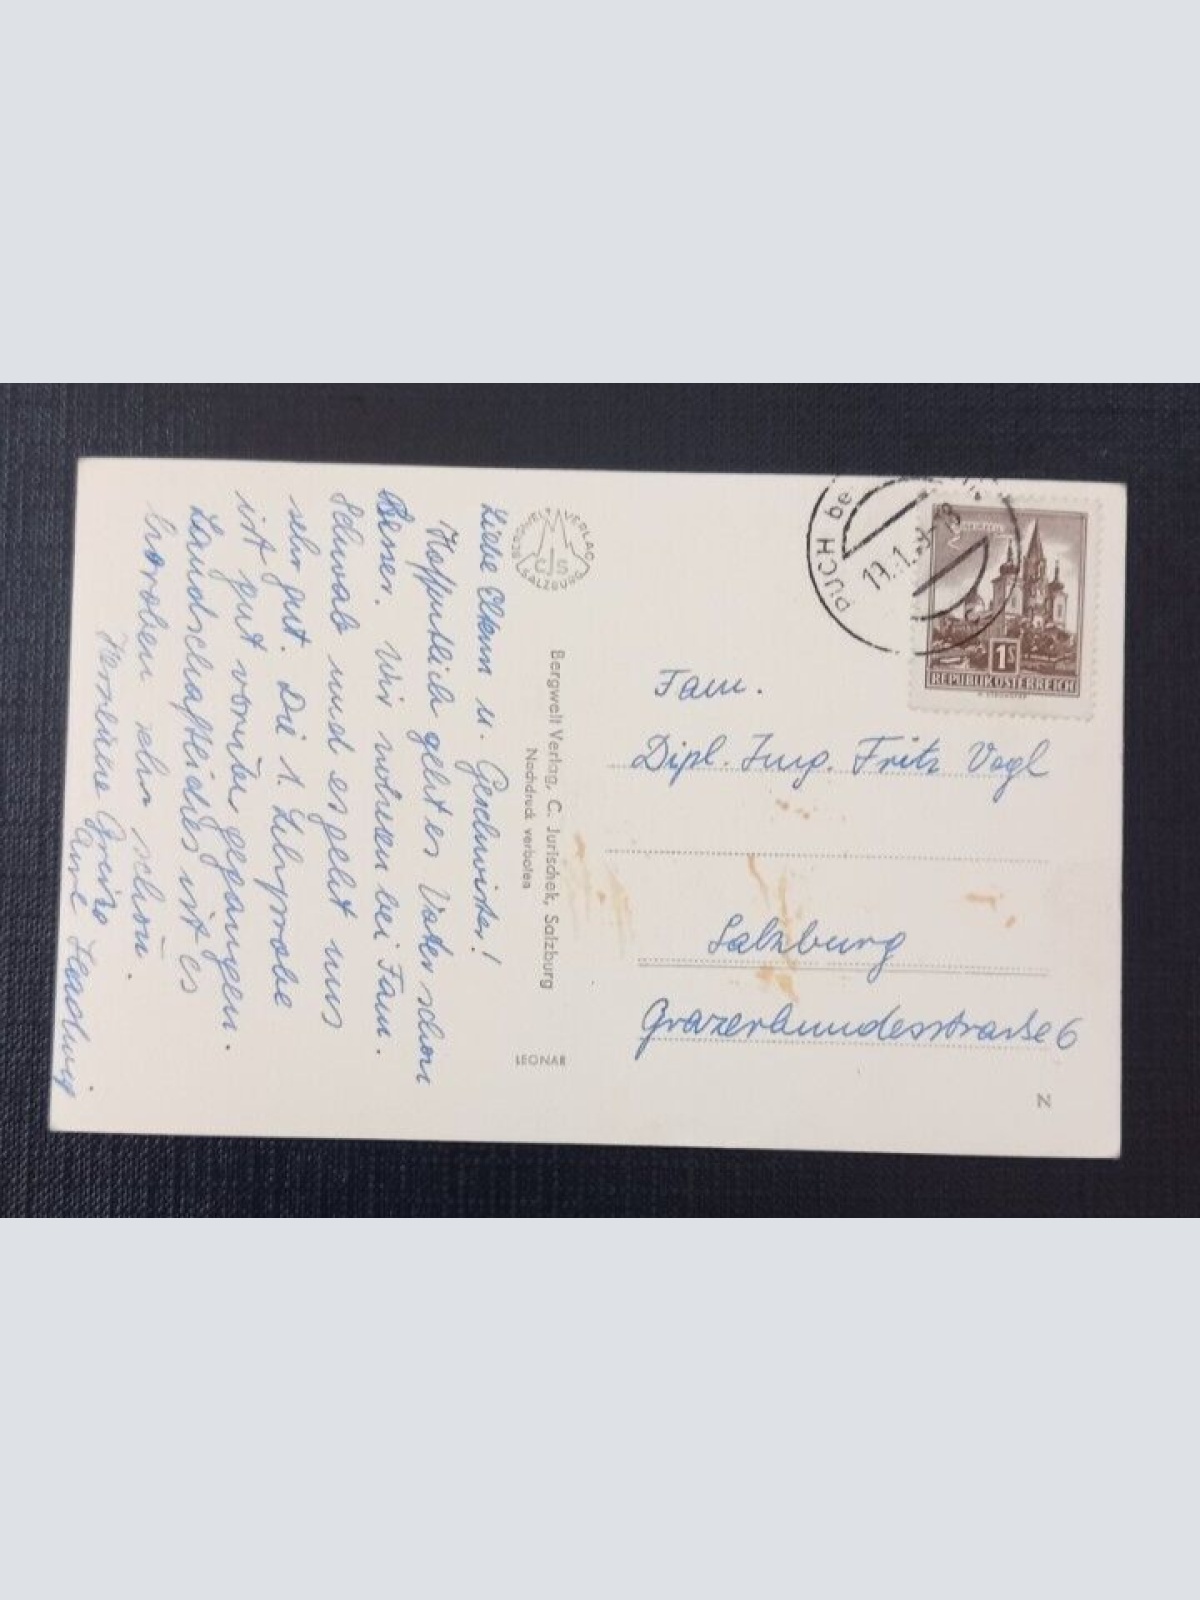 Liebe Eltern u. Geschwister!
Hoffentlich geht es Vater schon
besser. Wir wohnen bei Fam.
Schwab und es geht uns
sehr gut. Die 1. Lehrprobe
ist gut vorüber gegangen.
Landschaftlich ist es
hier oben sehr schön.
Herzliche Grüße
Eure Hedwig
BERGWELT VERLAG
CJS
SALZBURG
Bergwelt Verlag, C. Jurischek, Salzburg
Nachdruck verboten
LEONAR
PUCH bei
17. 1.
1S
REPUBLIK ÖSTERREICH
Fam.
Dipl. Ing. Fritz Vogl
Salzburg
Grazerbundesstraße 6
N